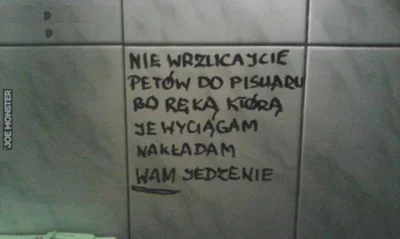 NIE WRZUCAJCIE
PETÓW DO PISUARU
BO RĘKĄ KTÓRĄ
JE WYCIĄGAM
NAKŁADAM
WAM JEDZENIE
JOE MONSTER